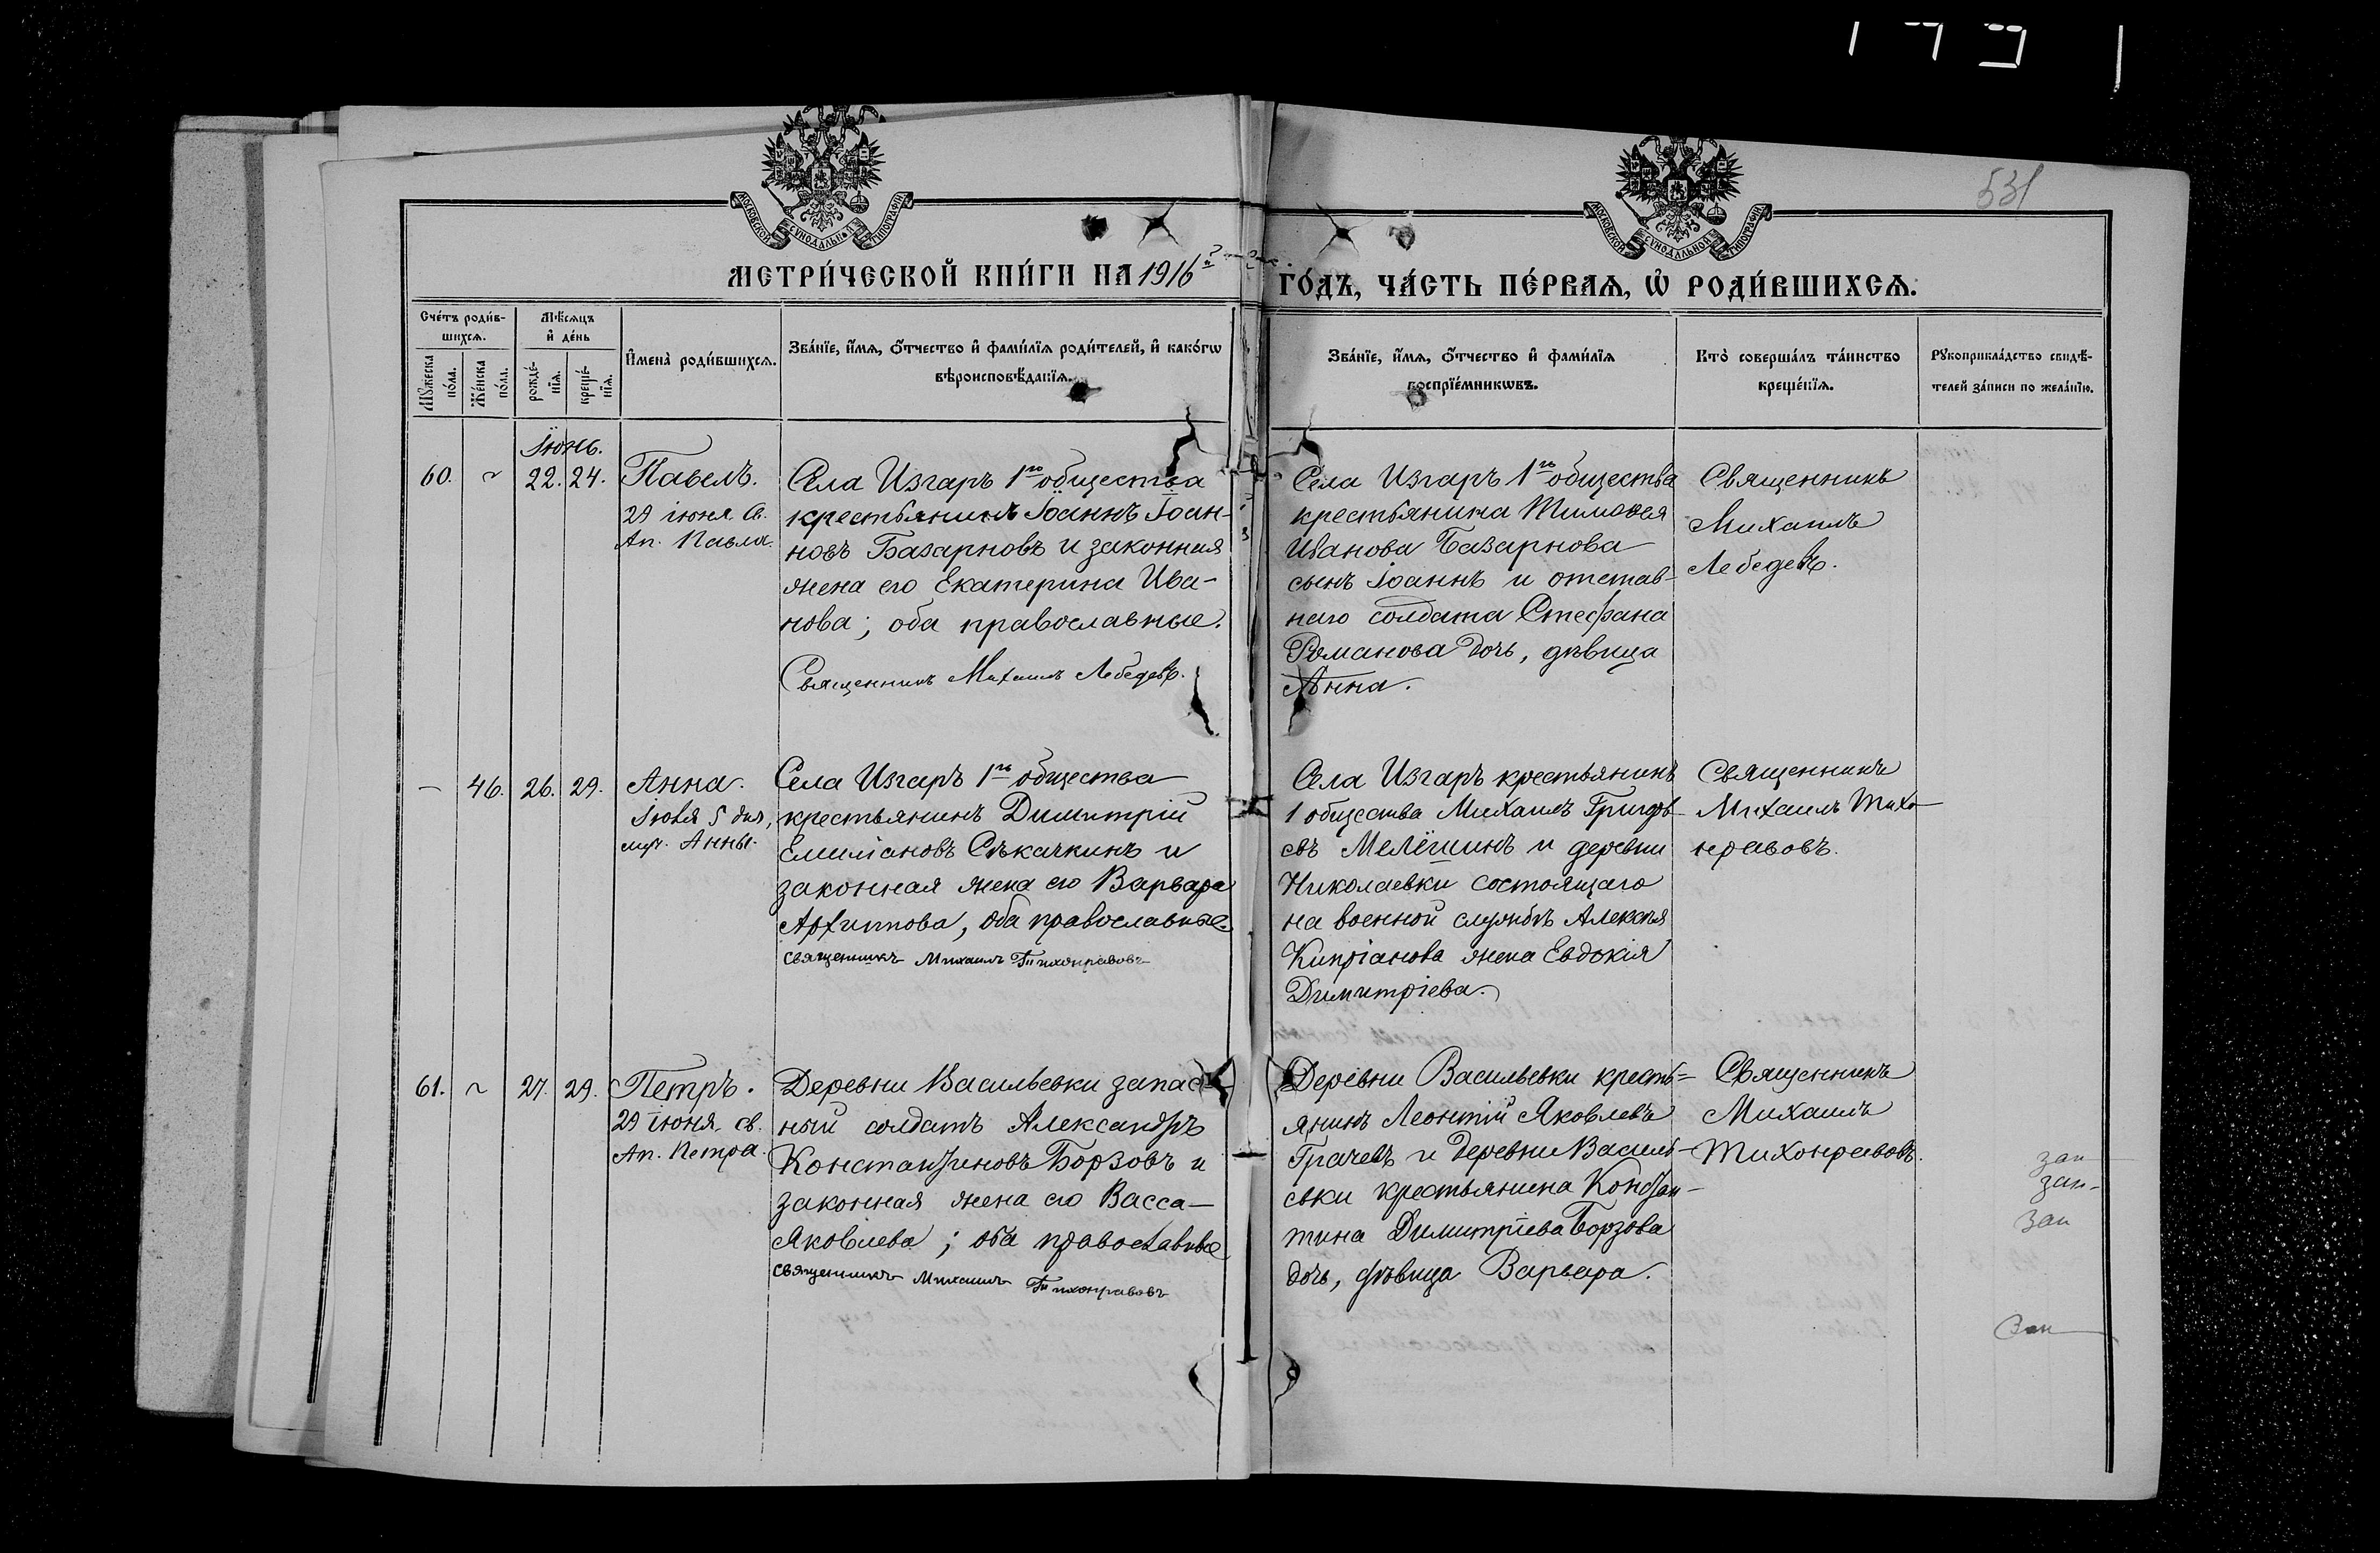 531
МОСКОВСКОЙ СѴНОДАЛЬНОЙ ТИПОГРАФІИ
МОСКОВСКОЙ СѴНОДАЛЬНОЙ ТИПОГРАФІИ
МЕТРИ́ЧЕСКОЙ КНИ́ГИ НА 1916й
ГО́ДЪ, ЧА́СТЬ ПЕ́РВАѦ, Ѡ҆ РОДИ́ВШИХСѦ.
Сче́тъ роди́в-
шихсѧ.
Мꙋ́жеска по́ла.
Же́нска по́ла.
Мѣ́сѧцъ
и҆ де́нь
рожде́-
нїѧ.
креще́-
нїѧ.
И҆мена̀ роди́вшихсѧ.
Зва́нїе, и҆́мѧ, ѻ҆́тчество и҆ фами́лїѧ роди́телей, и҆ како́гѡ
вѣроисповѣ́данїѧ.
Зва́нїе, и҆́мѧ, ѻ҆́тчество и҆ фами́лїѧ
воспрїе́мникѡвъ.
Кто̀ соверша́лъ та́инство
креще́нїѧ.
Рꙋкоприкла́дство свидѣ́-
телей за́писи по жела́нїю.
Іюнь.
60. ~ 22. 24.
Павелъ.
29 іюня св.
Ап. Павла.
Села Изгаръ 1го общества
крестьянинъ Іоаннъ Іоан-
новъ Базарновъ и законная
жена его Екатерина Ива-
нова; оба православные.
Священникъ Михаилъ Лебедевъ.
Села Изгаръ 1го общества
крестьянина Тимоѳея
Иванова Базарнова
сынъ Іоаннъ и отстав-
наго солдата Стефана
Романова дочь, дѣвица
Анна.
Священникъ
Михаилъ
Лебедевъ.
– 46. 26. 29.
Анна.
Іюля 5 дня,
муч. Анны.
Села Изгаръ 1го общества
крестьянинъ Димитрій
Емиліановъ Сѣкачкинъ и
законная жена его Варвара
Архиппова, оба православные.
священникъ Михаилъ Тихонравовъ
Села Изгаръ крестьянинъ
1 общества Михаилъ Григорь-
евъ Мелёшинъ и деревни
Николаевки состоящаго
на военной службѣ Алексѣя
Кипріанова жена Евдокія
Димитріева.
Священникъ
Михаилъ Тихо-
нравовъ.
61. ~ 27. 29.
Петръ.
29 іюня св.
Ап. Петра.
Деревни Васильевки запас-
ный солдатъ Александръ
Константиновъ Борзовъ и
законная жена его Васса
Яковлева; оба православные
священникъ Михаилъ Тихонравовъ
Деревни Васильевки кресть=
янинъ Леонтій Яковлевъ
Грачевъ и деревни Василь-
евки крестьянина Констан-
тина Димитріева Борзова
дочь, дѣвица Варвара.
Священникъ
Михаилъ
Тихонравовъ.
зап
зап-
Зап
Зап